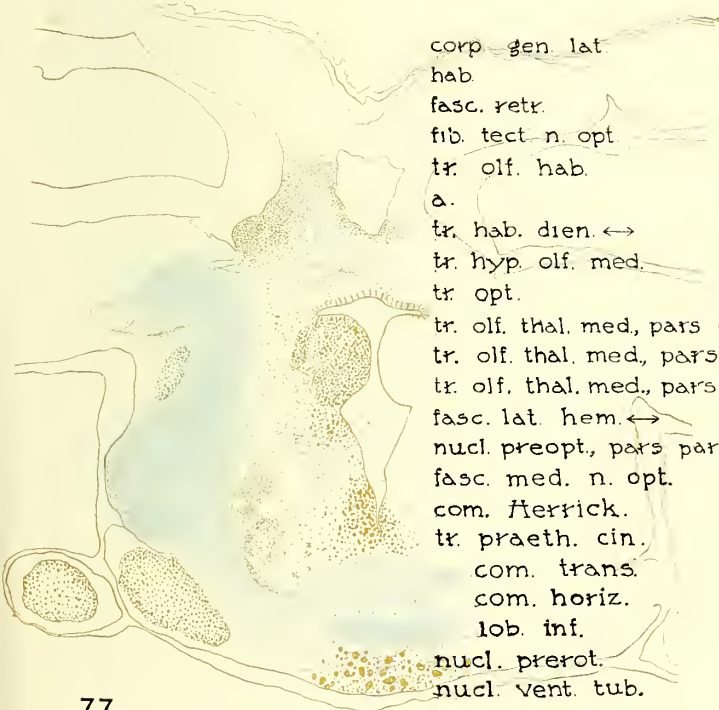 corp. gen. lat.
hab.
fasc. retr.
fib. tect. n. opt.
tr. olf. hab.
a.
tr. hab. dien. ↔
tr. hyp. olf. med.
tr. opt.
tr. olf. thal. med., pars
tr. olf. thal. med., pars
tr. olf. thal. med., pars
fasc. lat. hem. ↔
nucl. preopt., pars par
fasc. med. n. opt.
com. Herrick.
tr. praeth. cin.
com. trans.
com. horiz.
lob. inf.
nucl. prerot.
nucl. vent. tub.
77